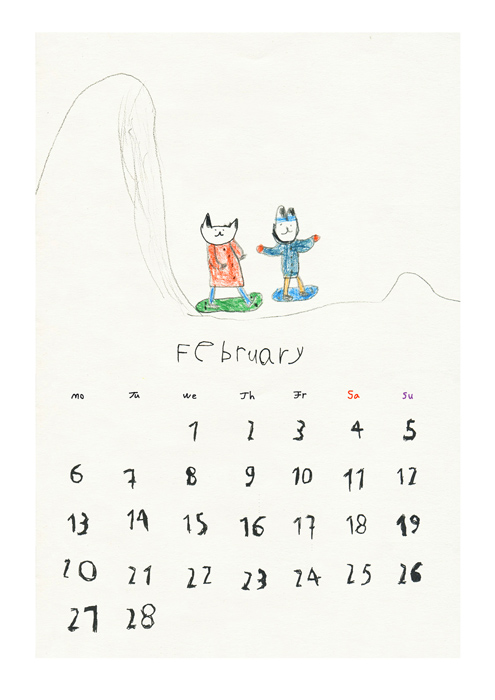 February
Mo Tu We Th Fr Sa Su
1 2 3 4 5
6 7 8 9 10 11 12
13 14 15 16 17 18 19
20 21 22 23 24 25 26
27 28